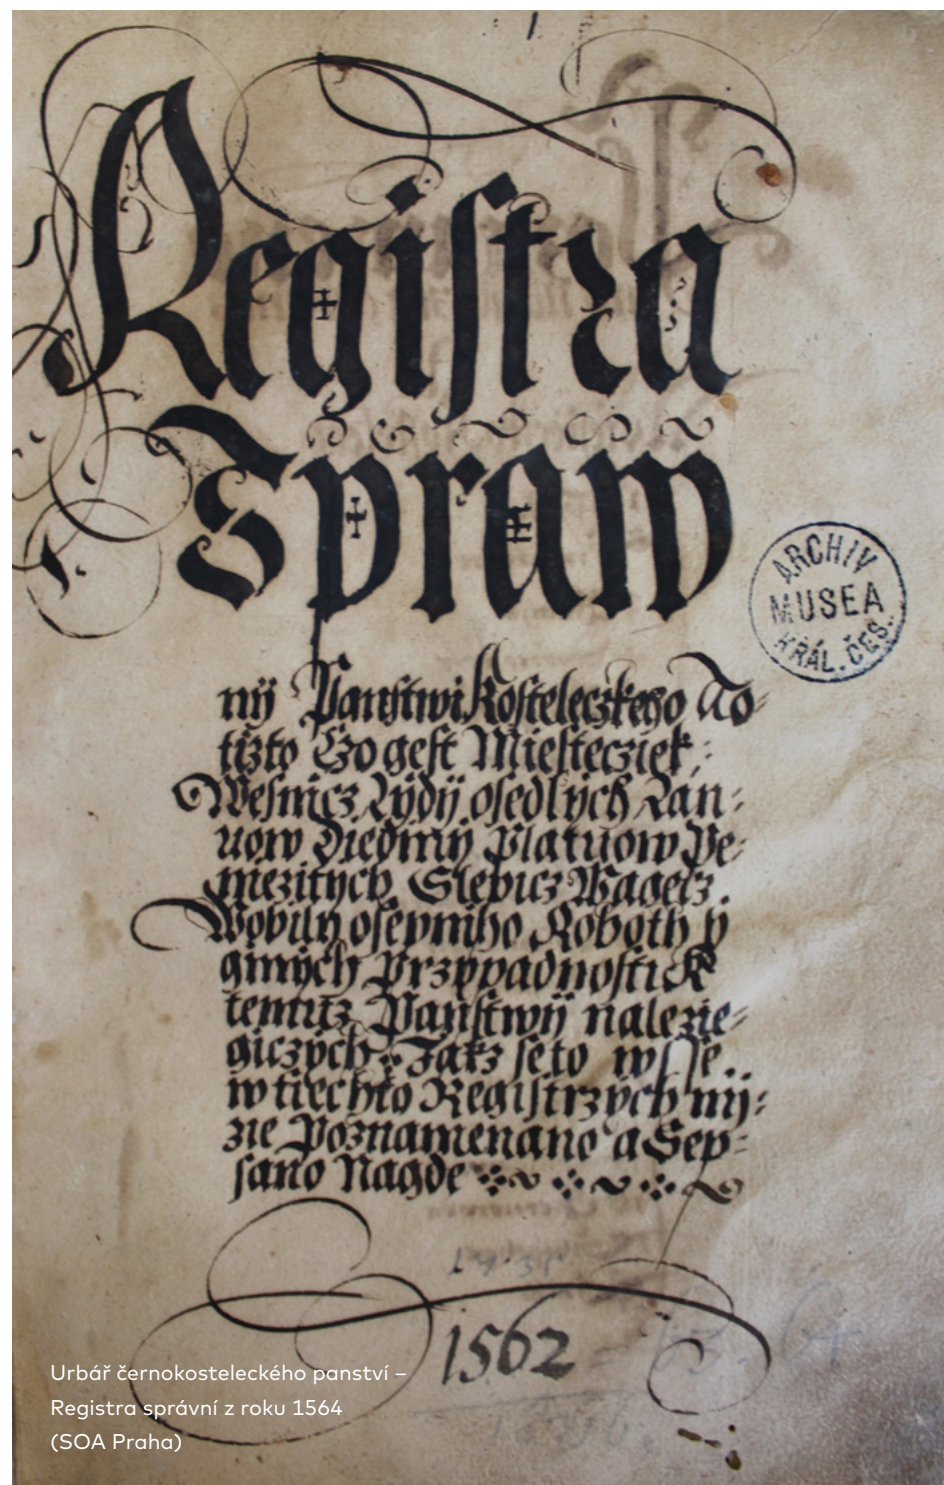 Registra
Spraw
nÿ Panstwi Kosteleczkeho To-
tizto Czo gest Miestecziek,
Wesnicz Lydÿ osedlych Lan-
uow Diedin Platuow Pe-
niezitych, Slepicz Wagecz.
Wobilij osepniho Roboth y
ginych Przypadnosti K
temuz Panstwÿ nalezie-
giczych Jakz se to wsse
w tiechto Registrzych nij-
zie Poznamenano a Sep-
sano Nagde
1562
ARCHIV
MUSEA
KRÁL. ČES.
Urbář černokosteleckého panství –
Registra správní z roku 1564
(SOA Praha)